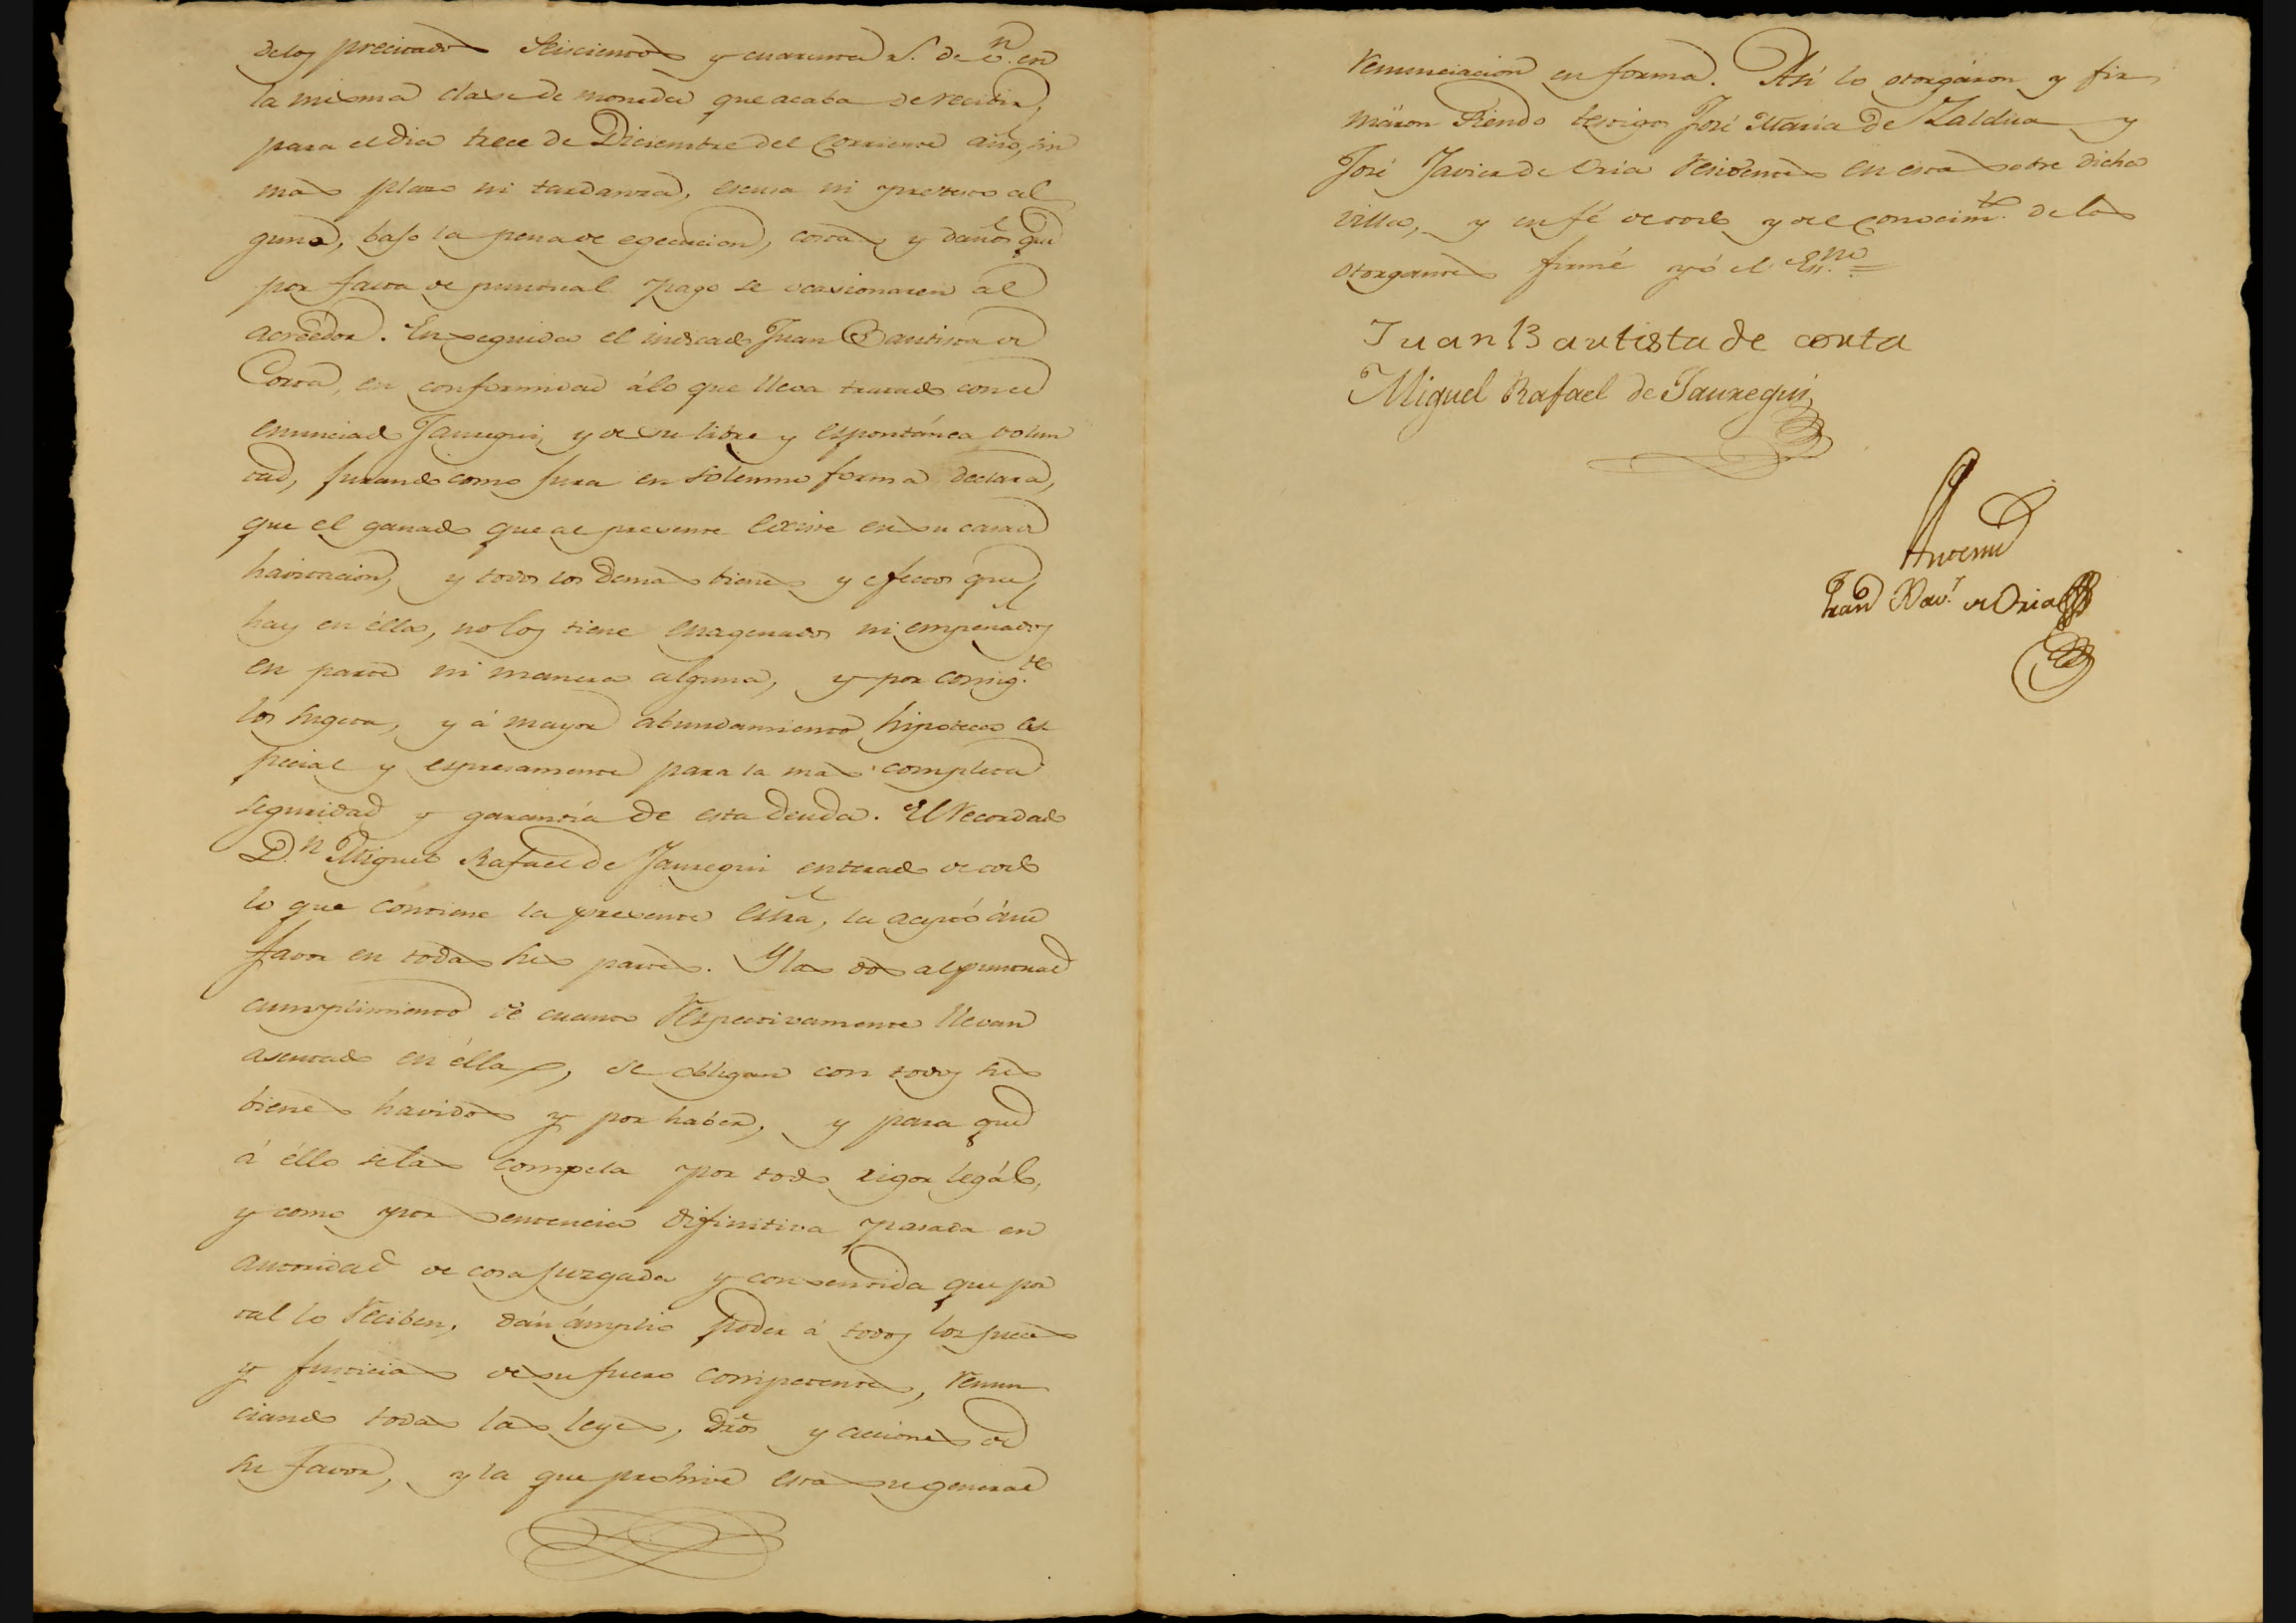 delos precitados Seiscientos y cuarenta rs. de vn. en
la misma clase de moneda que acaba de recibir,
para el dia trece de Diciembre del corriente año, sin
mas plazo ni tardanza, escusa ni pretesto al
guno, bajo la pena de egecucion, costas y daños que
por falta de puntual pago se ocasionaren al
acreédor. En seguida el indicado Juan Bautista de
Corta, en conformidad á lo que lleva tratado con el
enunciado Jauregui, y de su libre y espontánea volun
tad, jurando como jura en solemne forma declara,
que el ganado que al presente existe en su casa
havitacion, y todos los demas bienes y efectos que
hay en élla, no los tiene enagenados ni empeñados
en parte ni manera alguna, y por consigte.
los sugeta, y á mayor abundamiento hipoteca es
pecial y espresamente para la mas completa
seguridad y garantía de esta deuda. El recordado
Dn. Miguel Rafael de Jauregui enterado de todo
lo que contiene la presente Essra, la aceptó á su
favor en todas sus partes. Y los dos al puntual
cumplimiento de cuanto respectivamente llevan
asentado en élla, se obligan con todos sus
bienes havidos y por haber, y para que
á éllo se las compela por todo rigor legál,
y como por sentencia difinitiva pasada en
autoridad de cosa juzgada y consentida que por
tal lo reciben, dán ámplio poder á todos los jueces
y justicias de su fuero competente, renun
ciando todas las leyes, dros y acciones de
su favor, y la que prohive esta su general
renunciacion en forma. Asi lo otorgáron y fir
máron siendo testigos José María de Zaldua y
José Javier de Oria residentes en esta sobre dicha
villa, y en fé de todo y del conocimto. de los
otorgantes firmé yó el Esno.=
Juan Bautista de corta
Miguel Rafael de Jauregui
Antemi
Juan Bau.ta de Oria